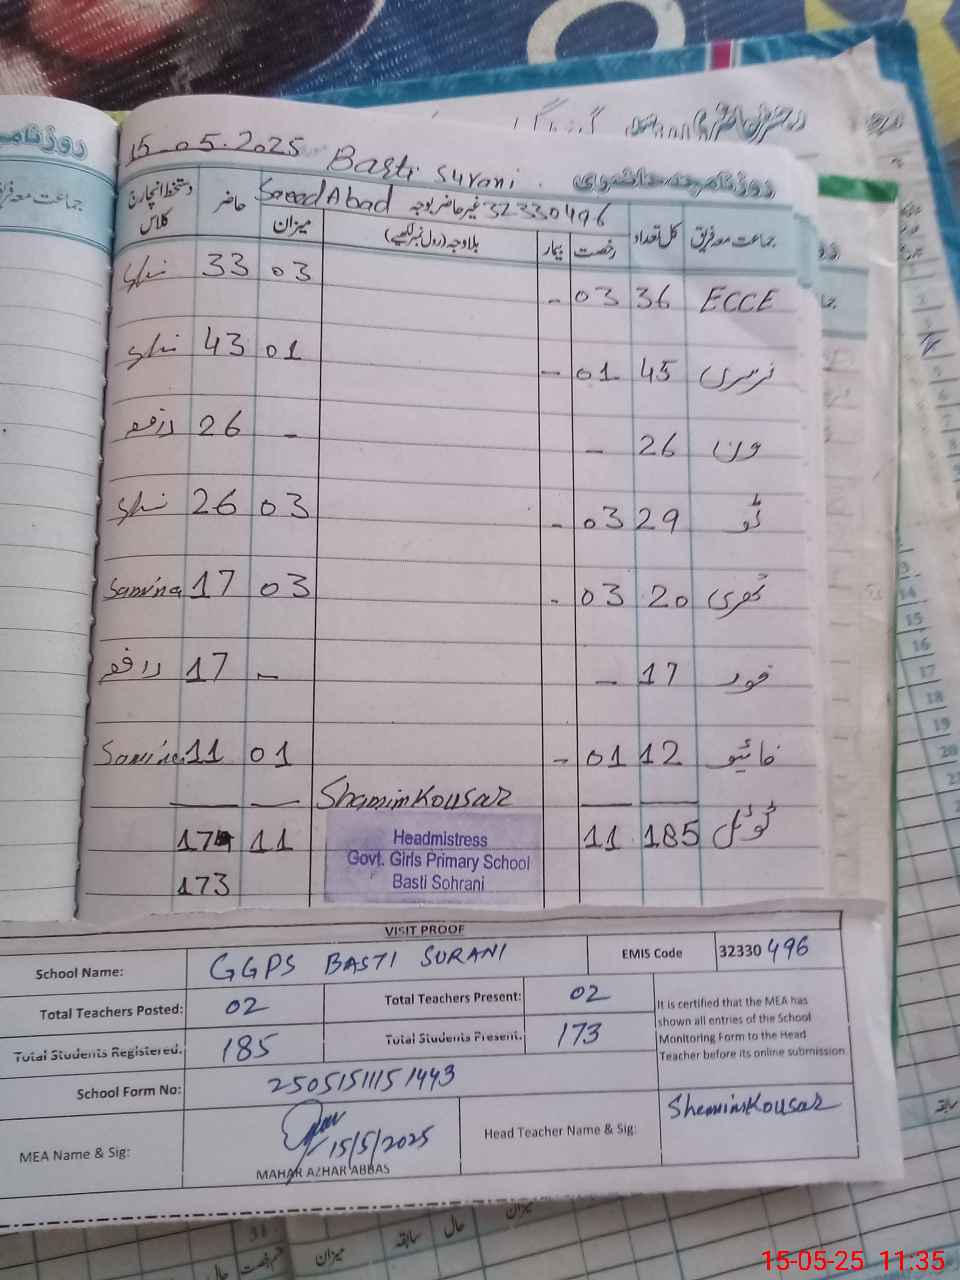 15-05-2025 Basti Surani. روزنامچہ حاضری
Saeed Abad 32330496
جماعت معہ فریق کل تعداد غیر حاضر بوجہ میزان حاضر دستخط انچارج کلاس
رخصت بیمار بلاوجہ (رول نمبر لکھیے)
ECCE 36 03 - 03 33
نرسری 45 01 - 01 43
ون 26 - - 26
ٹو 29 03 - 03 26
تھری 20 03 - 03 17 Samina
فور 17 - - 17
فائیو 12 01 - 01 11 Samina
Shamim Kousar
ٹوٹل 185 11 11 174
173
Headmistress
Govt. Girls Primary School
Basti Sohrani
VISIT PROOF
School Name: GGPS BASTI SURANI EMIS Code 32330496
Total Teachers Posted: 02 Total Teachers Present: 02
Total Students Registered: 185 Total Students Present: 173
It is certified that the MEA has
shown all entries of the School
Monitoring Form to the Head
Teacher before its online submission
School Form No: 2505151115 1443
MEA Name & Sig: 15/5/2025
MAHAR AZHAR ABBAS
Head Teacher Name & Sig: Shamim Kousar
روزنامچہ
جماعت معہ فریق
میزان حال سابقہ میزان
15-05-25 11:35